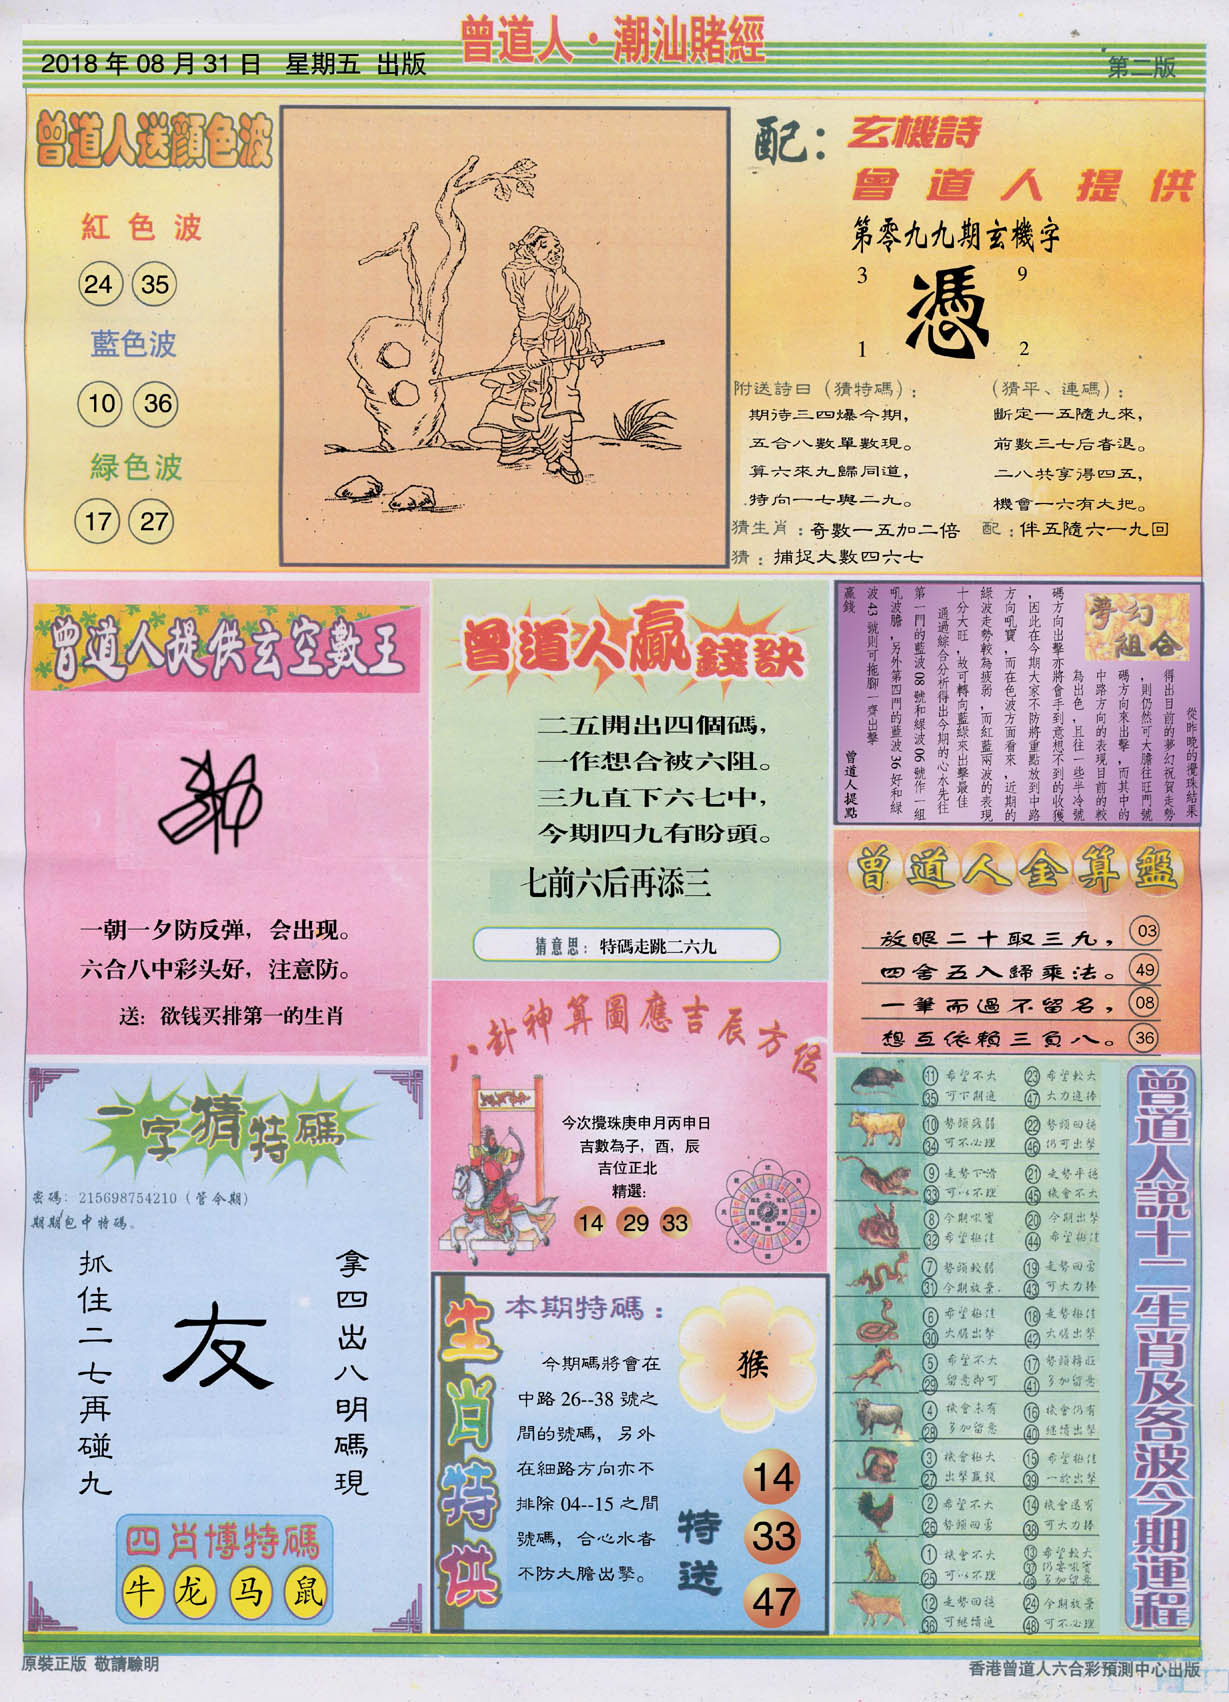 曾道人·潮汕賭經
2018 年 08 月 31 日 星期五 出版
第二版
曾道人送顏色波
紅色波
24 35
藍色波
10 36
緑色波
17 27
配：玄機詩
曾道人提供
第零九九期玄機字
3 9
憑
1 2
附送詩曰（猜特碼）：
期待三四爆今期，
五合八數單數現。
算六來九歸同道，
特向一七與二九。
（猜平、連碼）：
斷定一五隨九來，
前數三七后者退。
二八共享得四五，
機會一六有大把。
猜生肖：奇數一五加二倍
配：伴五隨六一九回
猜：捕捉大數四六七
曾道人提供玄空數王
一朝一夕防反弹，会出现。
六合八中彩头好，注意防。
送：欲钱买排第一的生肖
曾道人贏錢訣
二五開出四個碼，
一作想合被六阻。
三九直下六七中，
今期四九有盼頭。
七前六后再添三
猜意思：特碼走跳二六九
夢幻組合
從昨晚的攪珠結果
得出目前的夢幻祝賀走勢
，則仍然可大膽往旺門號
碼方向來出擊，而其中的
中路方向的表現目前的較
為出色，且往一些半冷號
碼方向出擊亦將會手到意想不到的收獲
，因此在今期大家不防將重點放到中路
方向吼寶，而在色波方面看來，近期的
綠波走勢較為疲弱，而紅藍兩波的表現
十分大旺，故可轉向藍綠來出擊最佳
通過綜合分析得出今期的心水先往
第一門的藍波 08 號和綠波 06 號作一組
吼波膽，另外第四門的藍波 36 好和綠
波 43 號則可拖腳一齊出擊
贏錢
曾道人提點
曾道人金算盤
放眼二十取三九， 03
四舍五入歸乘法。 49
一筆而過不留名， 08
想互依賴三負八。 36
八卦神算圖應吉辰方位
今次攪珠庚申月丙申日
吉數為子，酉，辰
吉位正北
精選：
14 29 33
一字猜特碼
密碼：215698754210（管今期）
期期包中特碼。
拿四出八明碼現
友
抓住二七再碰九
四肖博特碼
牛 龙 马 鼠
生肖特供
本期特碼：
今期碼將會在
中路 26--38 號之
間的號碼，另外
在細路方向亦不
排除 04--15 之間
號碼，合心水者
不防大膽出擊。
猴
特送
14
33
47
曾道人說十二生肖及各波今期運程
11 希望不大 23 希望較大
35 可下期追 47 大力追捧
10 勢頭殘弱 22 勢頭回穩
34 可不必理 46 仍可出擊
9 走勢下滑 21 走勢平穩
33 可以不理 45 機會不大
8 今期吼寶 20 今期出擊
32 希望極佳 44 希望極佳
7 勢頭較弱 19 走勢回勇
31 今期放棄. 43 可大力捧
6 希望極佳 18 走勢極佳
30 大膽出擊 42 大膽出擊
5 希望不大 17 勢頭轉旺
29 留意即可 41 多加留意
4 機會未有 16 機會仍有
28 多加留意 40 繼續出擊
3 機會極大 15 希望極佳
27 出擊贏錢 39 一於出擊
2 希望不大 14 機會還有
26 勢頭回勇 38 可大力捧
1 機會不大 13 希望較大
37 仍要吼寶
25 可以不理 49 多加留意
12 走勢回穩 24 今期放棄
36 可繼續追 48 可不必理
原裝正版 敬請驗明
香港曾道人六合彩預測中心出版